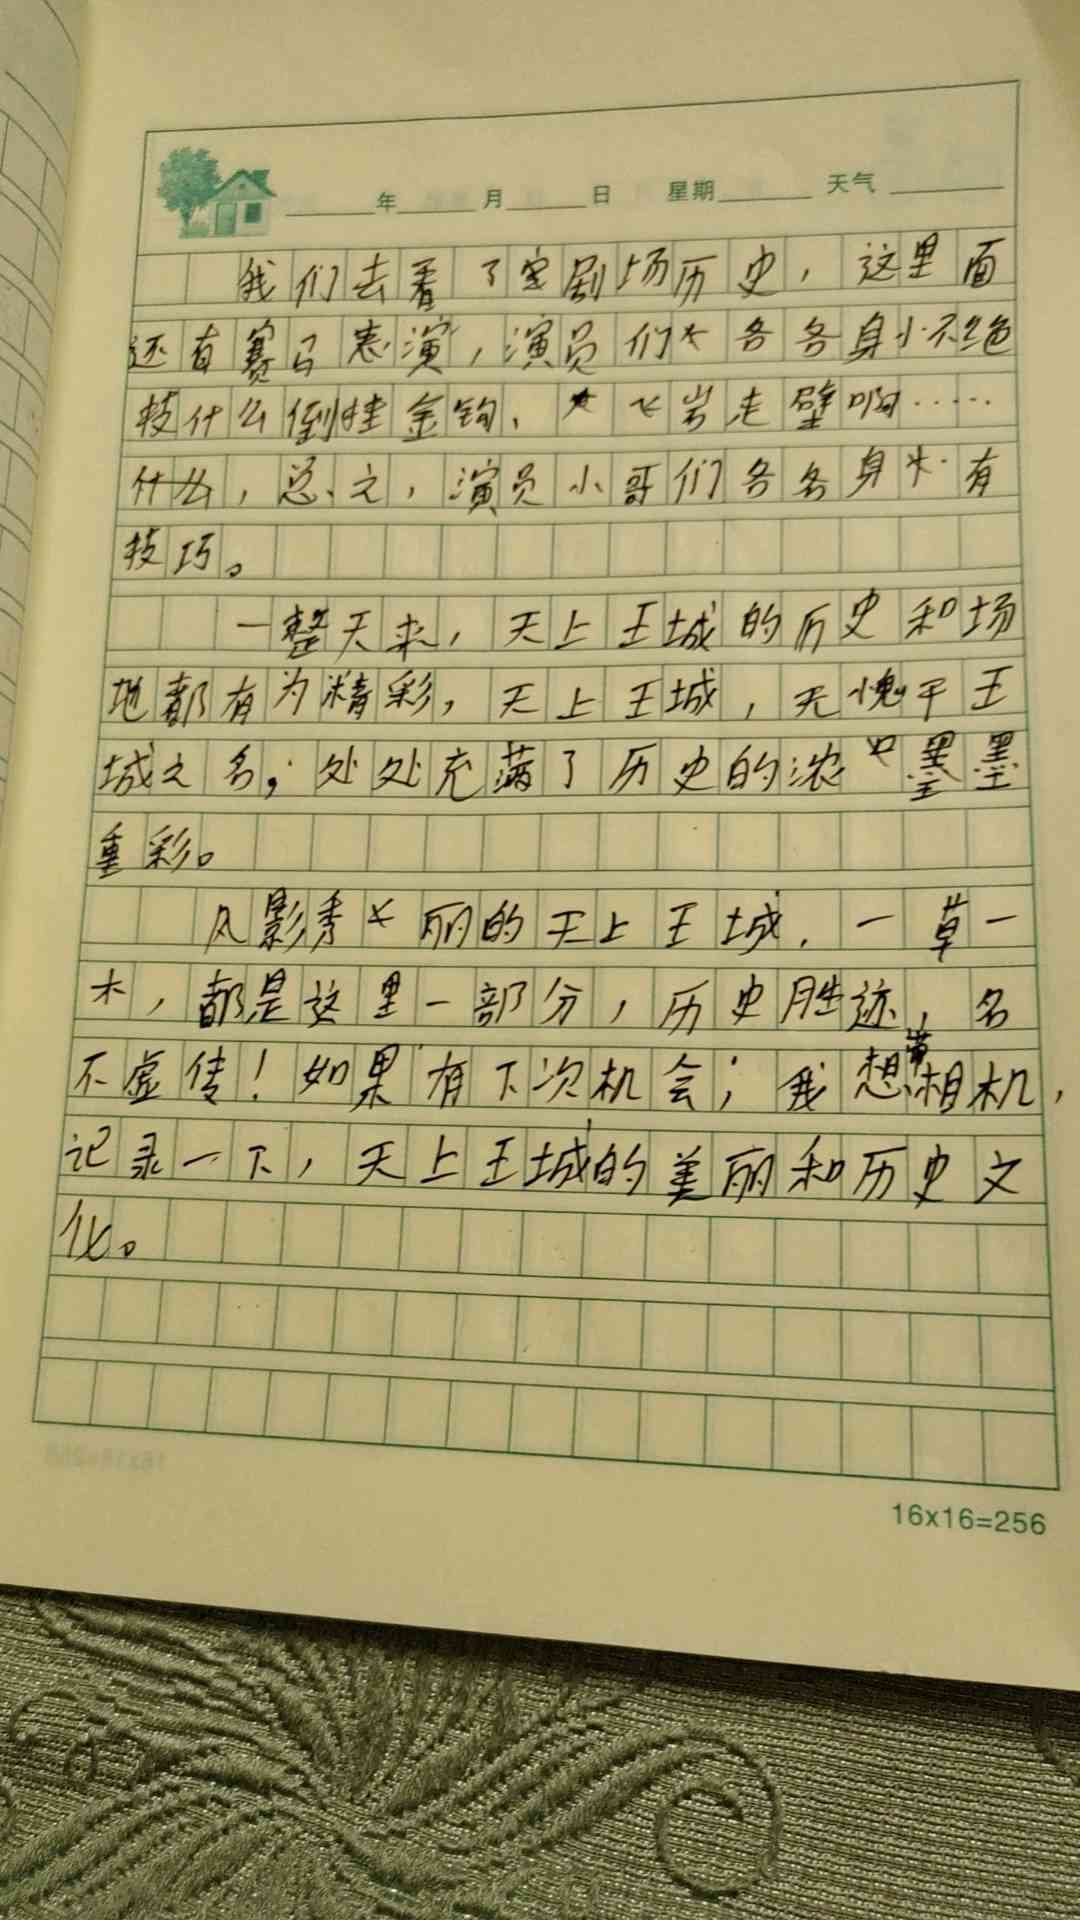 年 月 日 星期 天气
我们去看了实剧场历史，这里面
还有赛马表演，演员们各各身怀绝
技什么倒挂金钩、飞岩走壁啊……
什么，总之，演员小哥们各各身怀有
技巧。
一整天来，天上王城的历史和场
地都有为精彩，天上王城，无愧于王
城之名，处处充满了历史的浓墨墨
重彩。
风影秀丽的天上王城，一草一
木，都是这里一部分，历史胜迹，名
不虚传！如果有下次机会，我想带相机，
记录一下，天上王城的美丽和历史文
化。
16x16=256